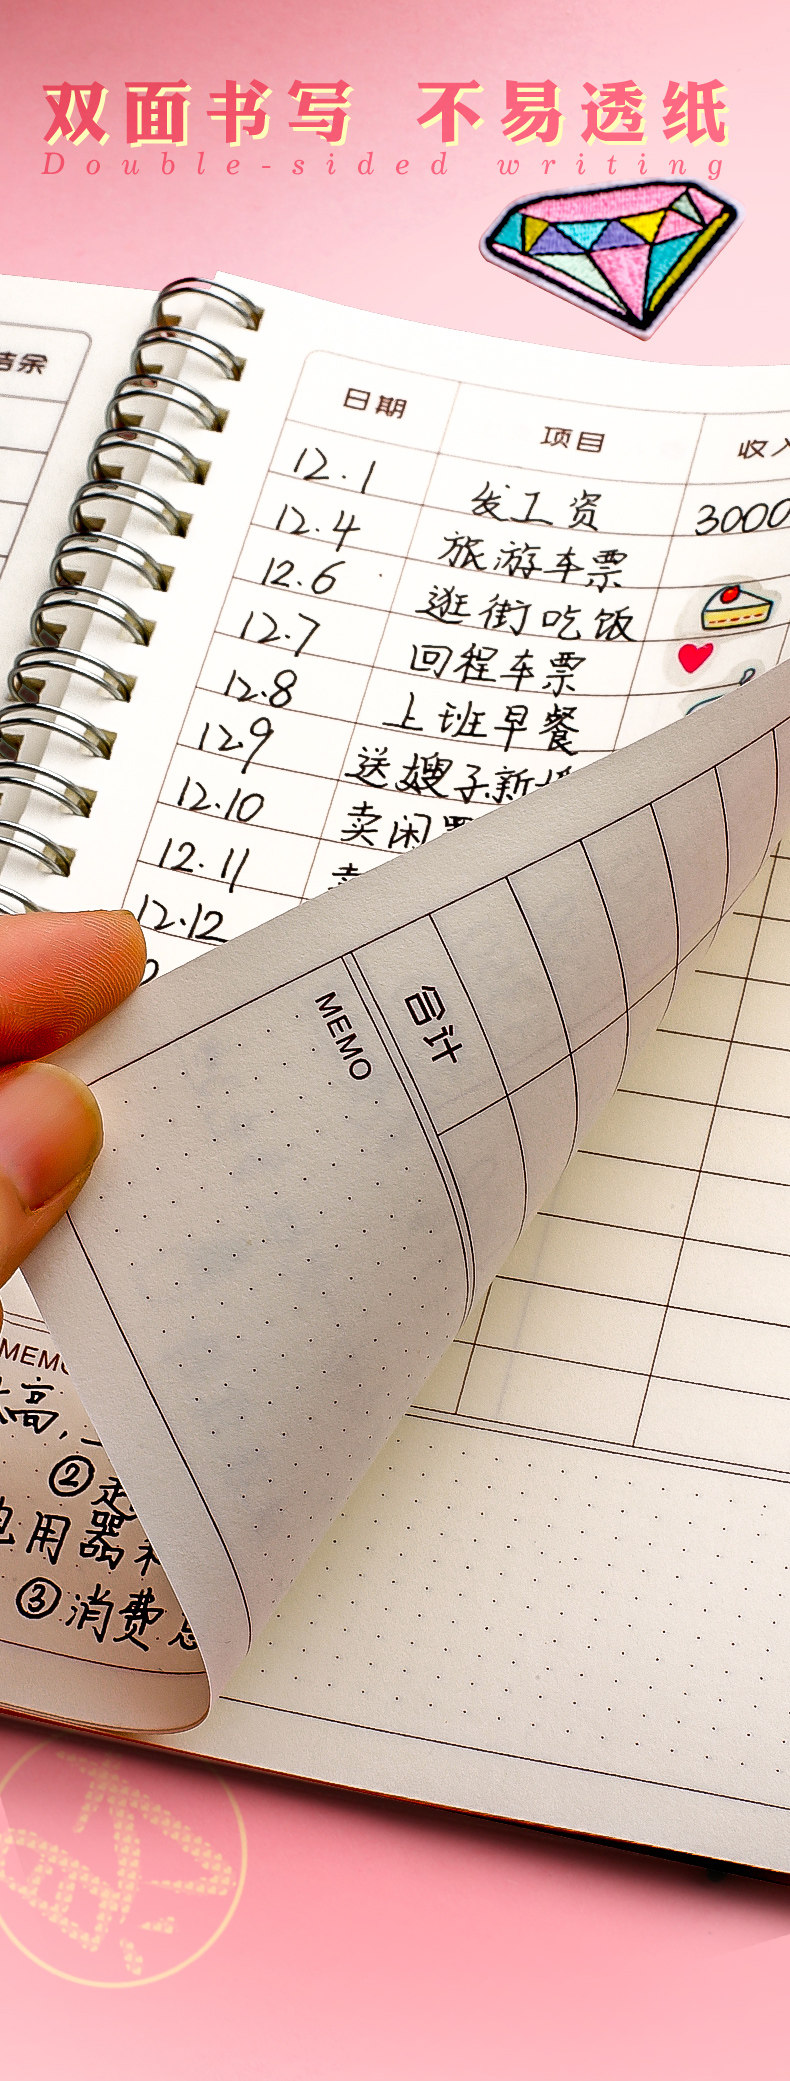 双面书写 不易透纸
Double-sided writing
结余
日期 项目 收入
12.1 发工资 3000
12.4 旅游车票
12.6 逛街吃饭
12.7 回程车票
12.8 上班早餐
12.9 送嫂子新
12.10 卖闲置
12.11 卖
12.12
合计
MEMO
MEMO
高,
②
用器
③消费